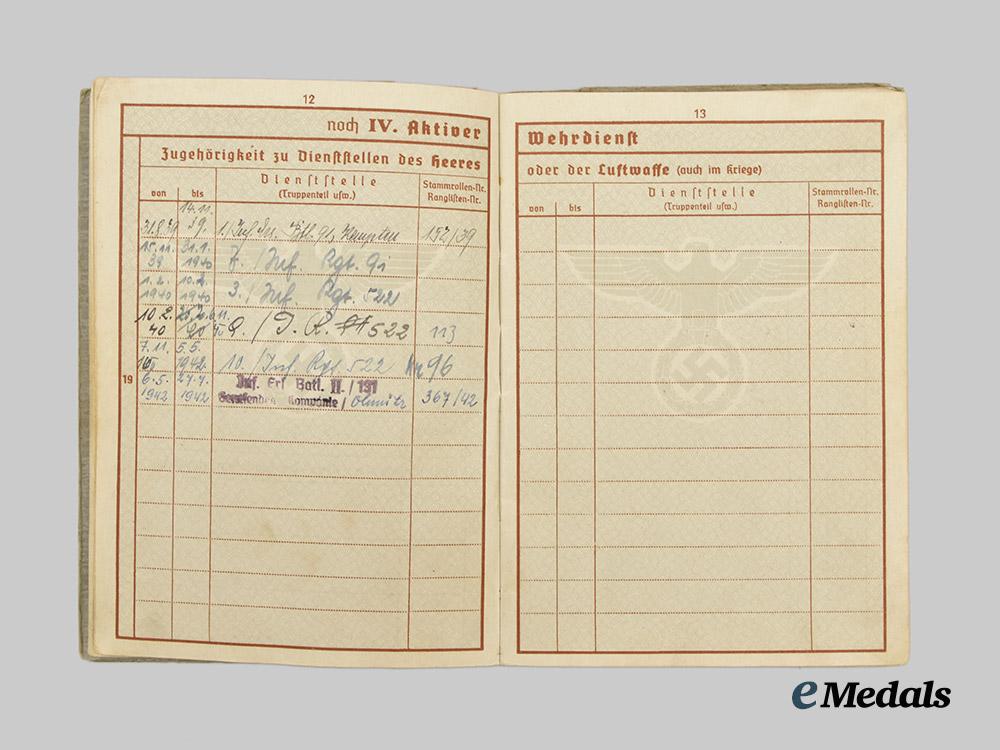 12
noch IV. Aktiver
Zugehörigkeit zu Dienststellen des Heeres
von bis Dienststelle (Truppenteil usw.) Stammrollen-Nr. Ranglisten-Nr.
14.11.
31.8.39 39. 1./Inf. 152/39
15.11. 31.1.
39 1940 7./Inf. Rgt. 91
1.2. 10.2.
1940 1940 3./Inf. Rgt. 522
10.2.
40 /I.R. 522 113
7.11. 5.5.
1942 10./Inf. Rgt. 522 96
19
6.5. 27.7. Inf. Erf Batl. II./131
1942 1942 Genesenden Kompanie / Olmütz 367/42
13
Wehrdienst
oder der Luftwaffe (auch im Kriege)
von bis Dienststelle (Truppenteil usw.) Stammrollen-Nr. Ranglisten-Nr.
eMedals